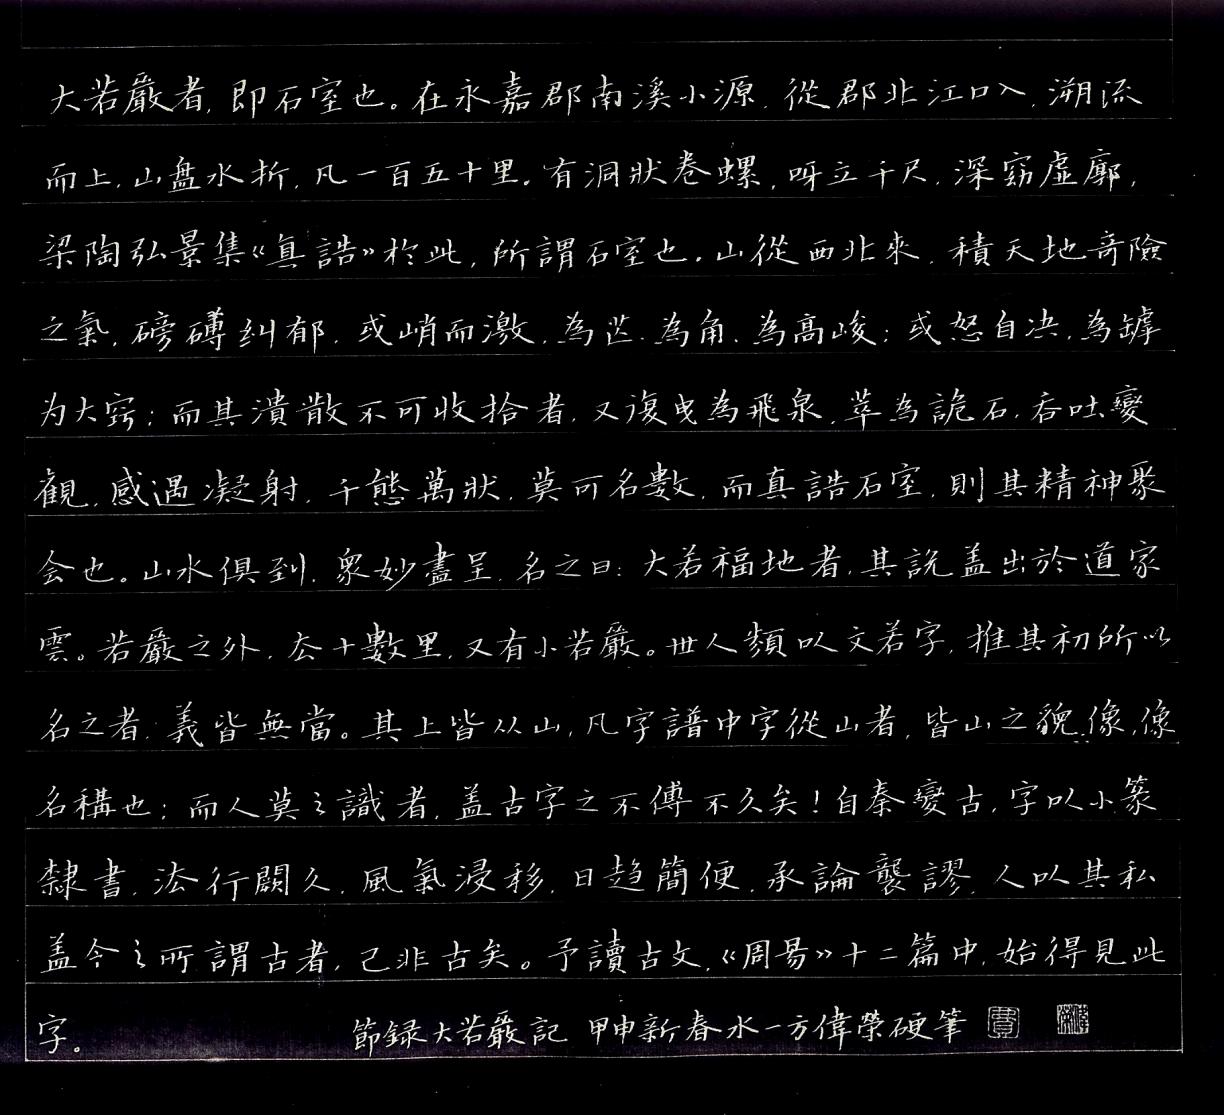 大若巖者,即石室也。在永嘉郡南溪小源,從郡北江口入,溯流
而上,山盘水折,凡一百五十里。有洞狀卷螺,呀立千尺,深窈虛廓,
梁陶弘景集《真誥》於此,所謂石室也。山從西北來,積天地奇險
之氣,磅礴纠郁,或峭而激,為芒、為角、為高峻;或怒自决,為罅
为大窍;而其潰散不可收拾者,又復曳為飛泉,萃為詭石,吞吐變
觀,感遇凝射,千態萬狀,莫可名數,而真誥石室,則其精神聚
会也。山水俱到,衆妙盡呈,名之曰:大若福地者,其說盖出於道家
雲。若巖之外,厺十數里,又有小若巖。世人類以文若字,推其初所以
名之者,義皆無當。其上皆从山,凡字譜中字從山者,皆山之貌像,像
名稱也;而人莫之識者,盖古字之不傳不久矣!自秦變古,字以小篆
隸書,法行闕久,風氣浸移,日趋簡便,承論襲謬,人以其私
盖今之所謂古者,已非古矣。予讀古文,《周易》十二篇中,始得見此
字。 節録大若巖記 甲申新春水一方偉榮硬筆